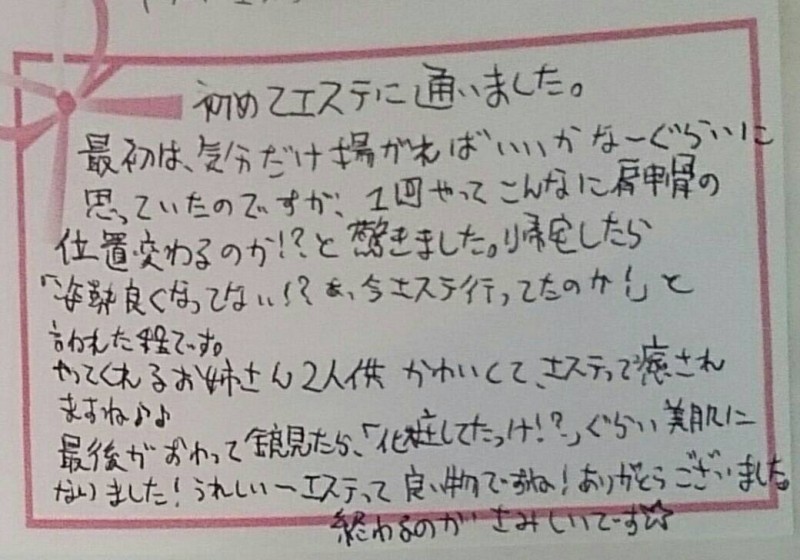 初めてエステに通いました。
最初は、気分だけ揚がればいいかなーぐらいに
思っていたのですが、1回やってこんなに肩甲骨の
位置変わるのか!?と驚きました。帰宅したら
「姿勢良くなってない!?あ、今日エステ行ってたのか!」と
言われた程です。
やってくれるお姉さん2人供かわいくて、エステって癒され
ますね♪♪
最後がおわって鏡見たら、「化粧してたっけ!?」ぐらい美肌に
なりました!うれしいーエステって良い物ですね!ありがとうございました。
終わるのがさみしいです☆